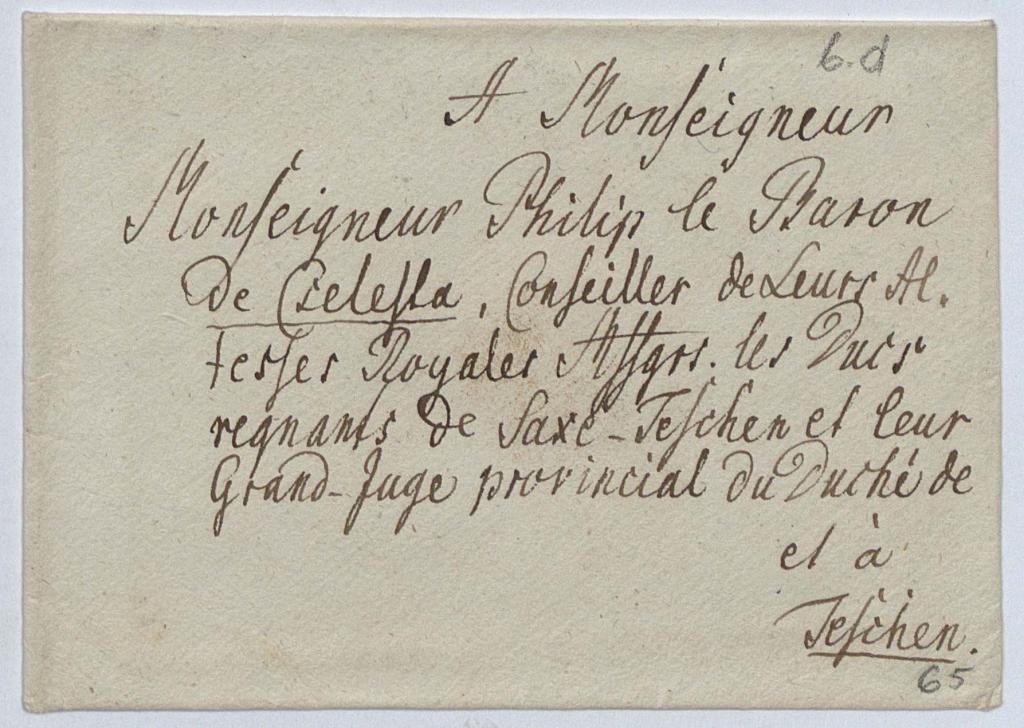 6.d
A Monseigneur
Monseigneur Philip le Baron
de Cselesta, Conseiller de Leurs Al-
tesses Royales Messgrs. les Ducs
regnants de Saxe-Teschen et leur
Grand-Juge provincial du Duché de
et à
Teschen.
65